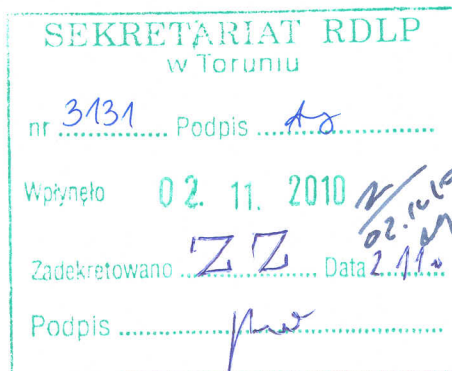 SEKRETARIAT RDLP
w Toruniu
nr 3131 Podpis
Wpłynęło 02. 11. 2010
Zadekretowano ZZ Data 2.11.
Podpis